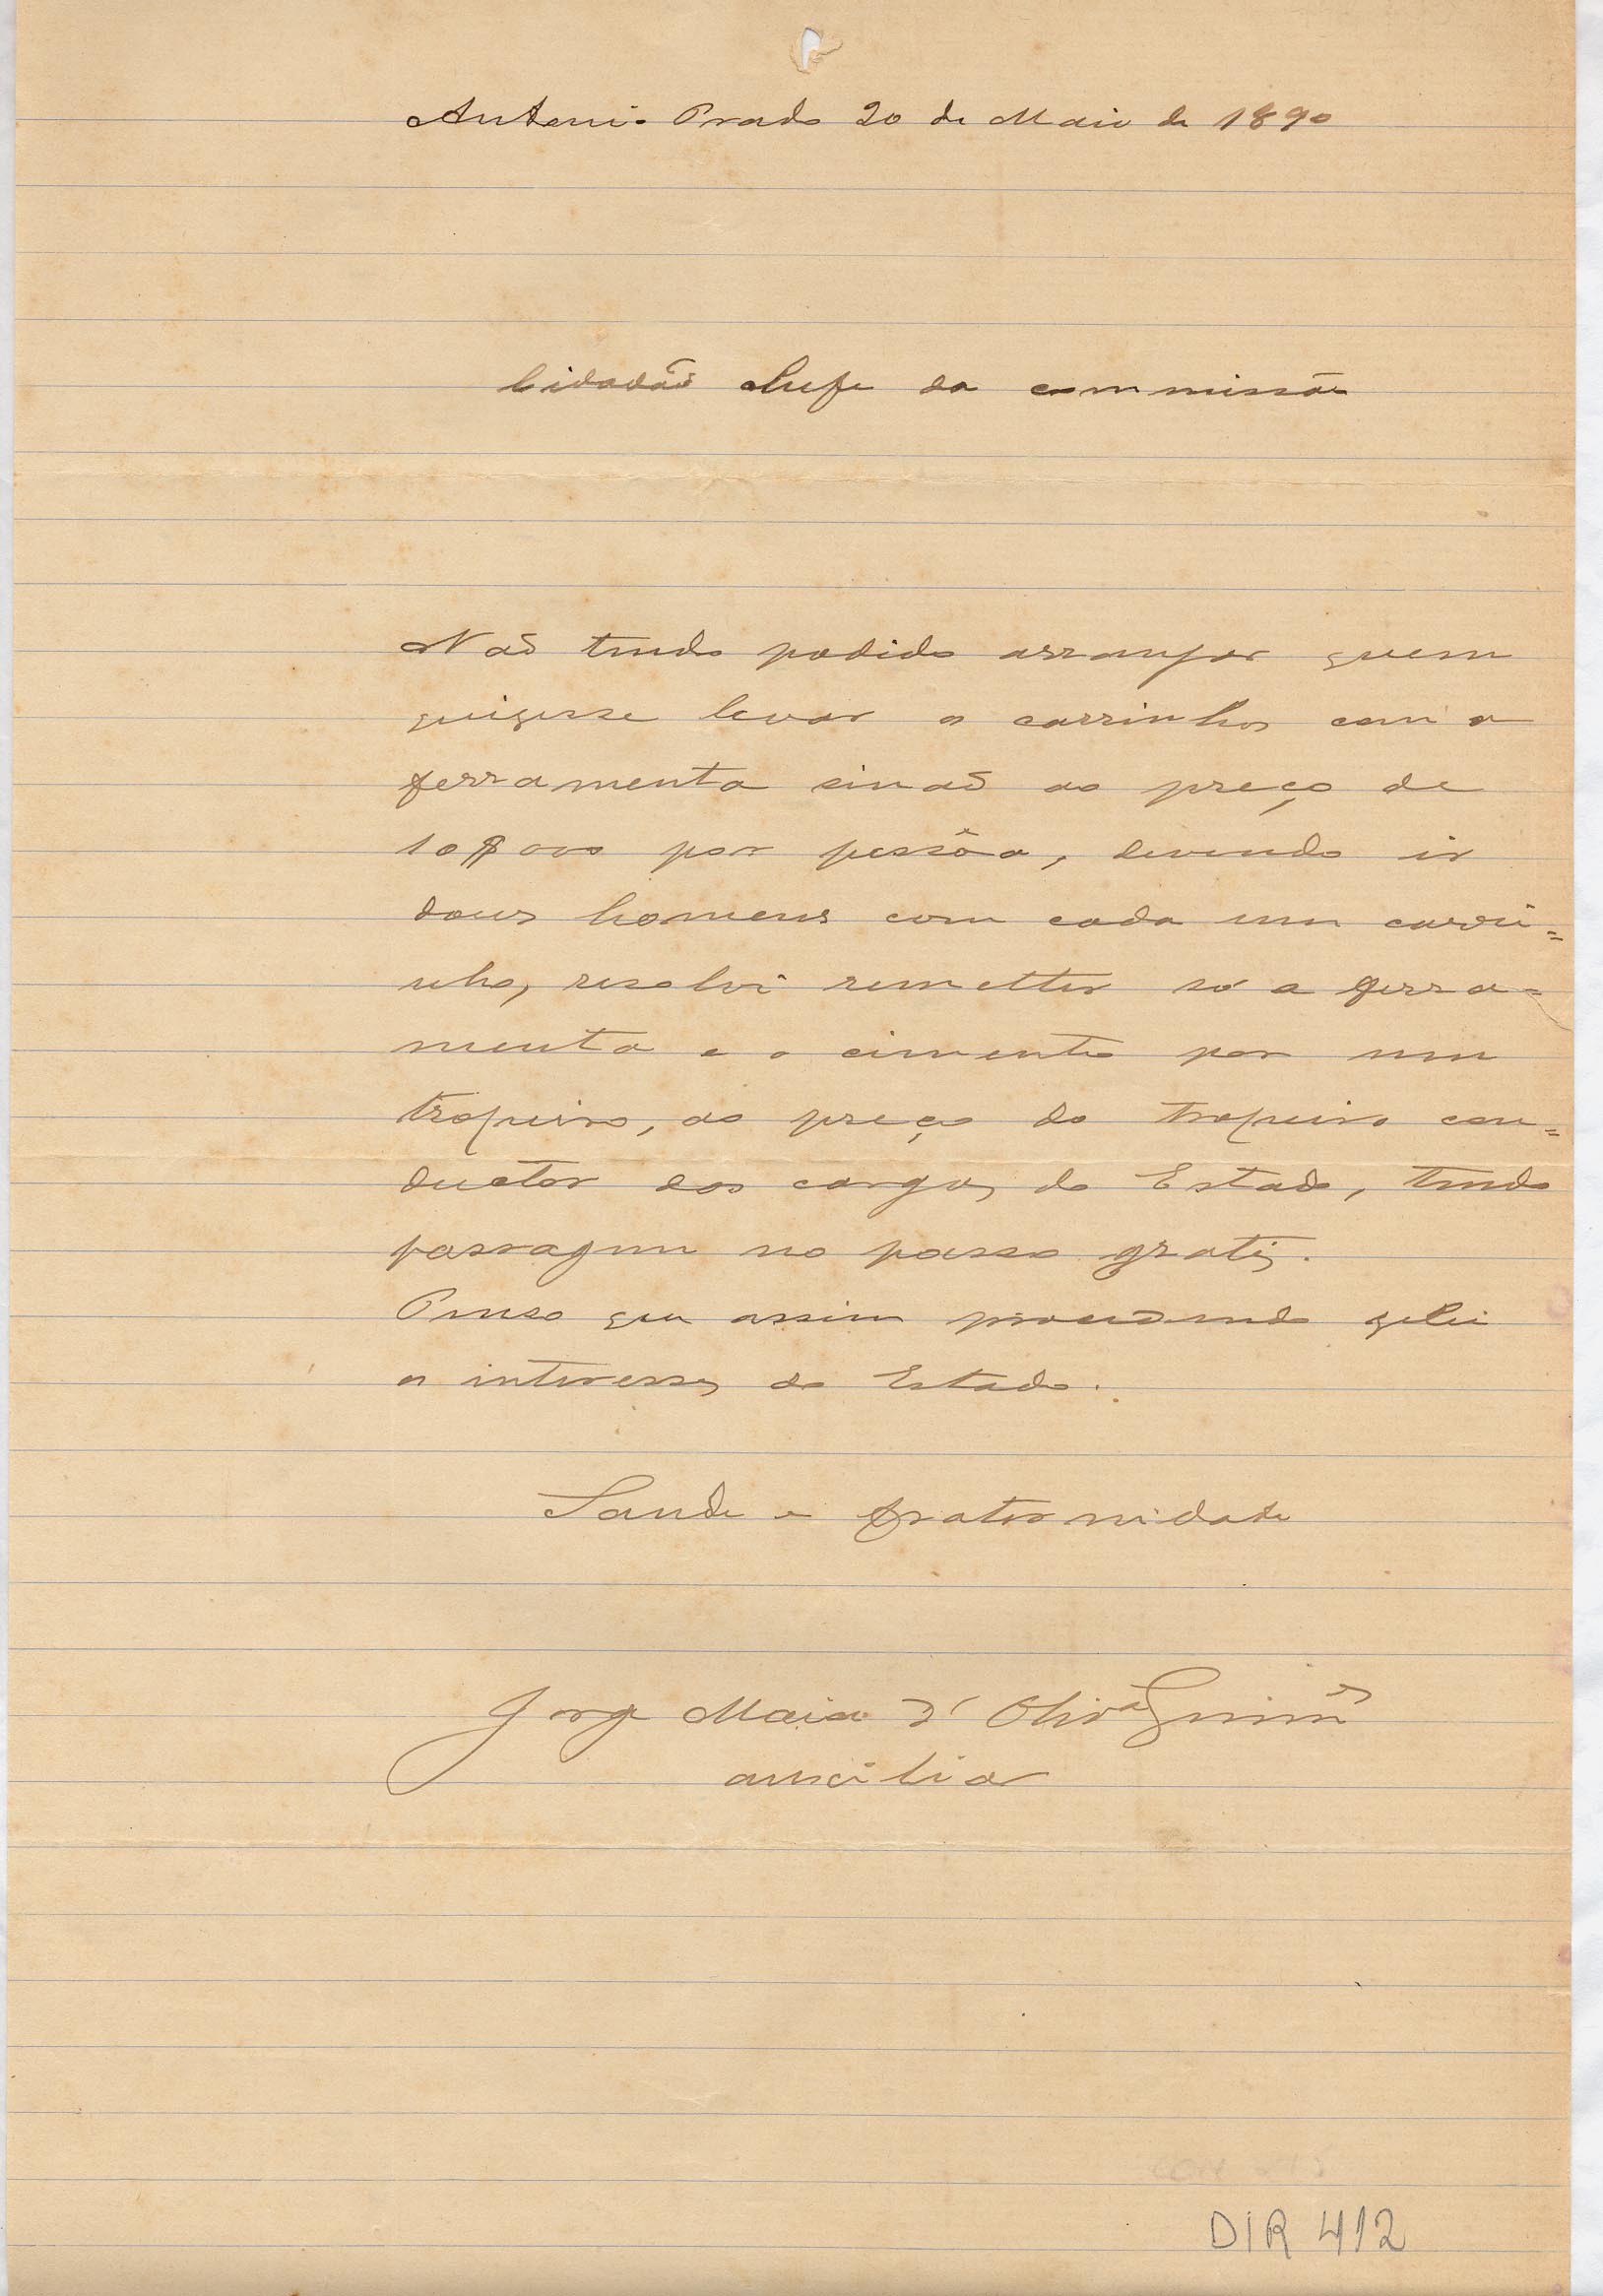 Antonio Prado 20 de Maio de 1890
Cidadão Chefe da commissão
Não tendo podido arranjar quem
quizesse levar os carrinhos com a
ferramenta sinaõ ao preço de
10$000 por pessôa, devendo ir
dous homens com cada um carri=
nho, resolvi remetter só a ferra=
menta e o cimento por um
tropeiro, ao preço do tropeiro con=
ductor das cargas do Estado, tendo
passagem no passo gratis.
Penso que assim procedendo zelei
os interesses do Estado.
Saude e fraternidade
Jorge Maia d'Olivª Guimes
auxiliar
DIR 412